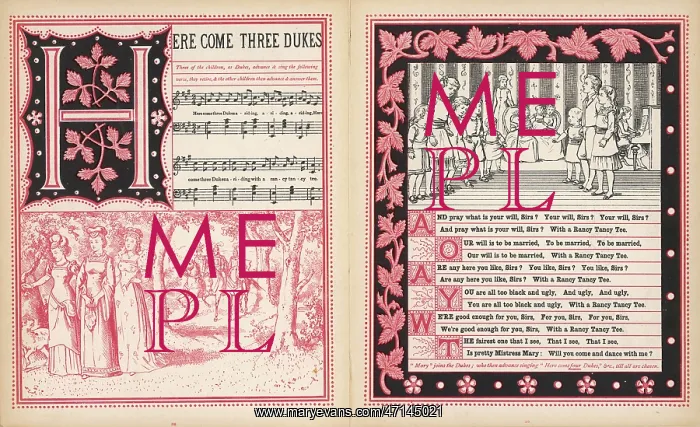 HERE COME THREE DUKES
Three of the children, as Dukes, advance & sing the following
verse, they retire, & the other children then advance & answer them.
Here come three Dukes a - riding, a - riding, a - riding, Here
come three Dukes a - riding with a ran - cy tan - cy tee.
ME
PL
ME
PL
AND pray what is your will, Sirs? Your will, Sirs? Your will, Sirs?
And pray what is your will, Sirs? With a Rancy Tancy Tee.
OUR will is to be married, To be married, To be married,
Our will is to be married, With a Rancy Tancy Tee.
ARE any here you like, Sirs? You like, Sirs? You like, Sirs?
Are any here you like, Sirs? With a Rancy Tancy Tee.
YOU are all too black and ugly, And ugly, And ugly,
You are all too black and ugly, With a Rancy Tancy Tee.
WE'RE good enough for you, Sirs, For you, Sirs, For you, Sirs,
We're good enough for you, Sirs, With a Rancy Tancy Tee.
THE fairest one that I see, That I see, That I see,
Is pretty Mistress Mary: Will you come and dance with me?
"Mary" joins the Dukes; who then advance singing "Here come four Dukes," &c., till all are chosen.
www.maryevans.com/47145021